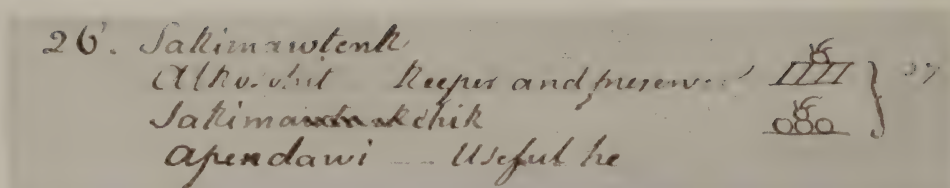 26. Sakimawtenk
Alkosohit Keeper and preserver
Sakima chik
Apendawi -- Useful he